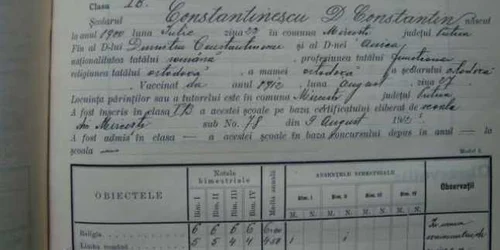 Clasa I B.
Școlarul Constantinescu D. Constantin născut
la anul 1900 luna Iulie ziua 22 în comuna Mircești județul
Fiu al D-lui Dumitru Constantinescu și al D-nei Anica
naționalitatea tatălui română, profesiunea tatălui
religiunea tatălui ortodoxă a mamei ortodoxă a școlarului ortodoxă
Vaccinat da anul 1912 luna August ziua 27.
Locuința părinților sau a tutorelui este în comuna Mircești județul
A fost înscris în clasa I B a acestei școale pe baza certificatului eliberat de școala
din Mircești sub No. 78 din 9 August 1912
A fost admis în clasa — a acestei școale în baza concursului depus în anul — la
școala —
Model 2.
OBIECTELE
Notele bimestriale
Media anuală
ABSENȚELE SEMESTRIALE
Observații
Bim. I Bim. II Bim. III Bim. IV
Bim. I Bim. II Bim. III Bim. IV
M. N. M. N. M. N. M. N.
Religia 6 6 6 6 6.00
Limba română 5 5 4 4 4.50 1 1